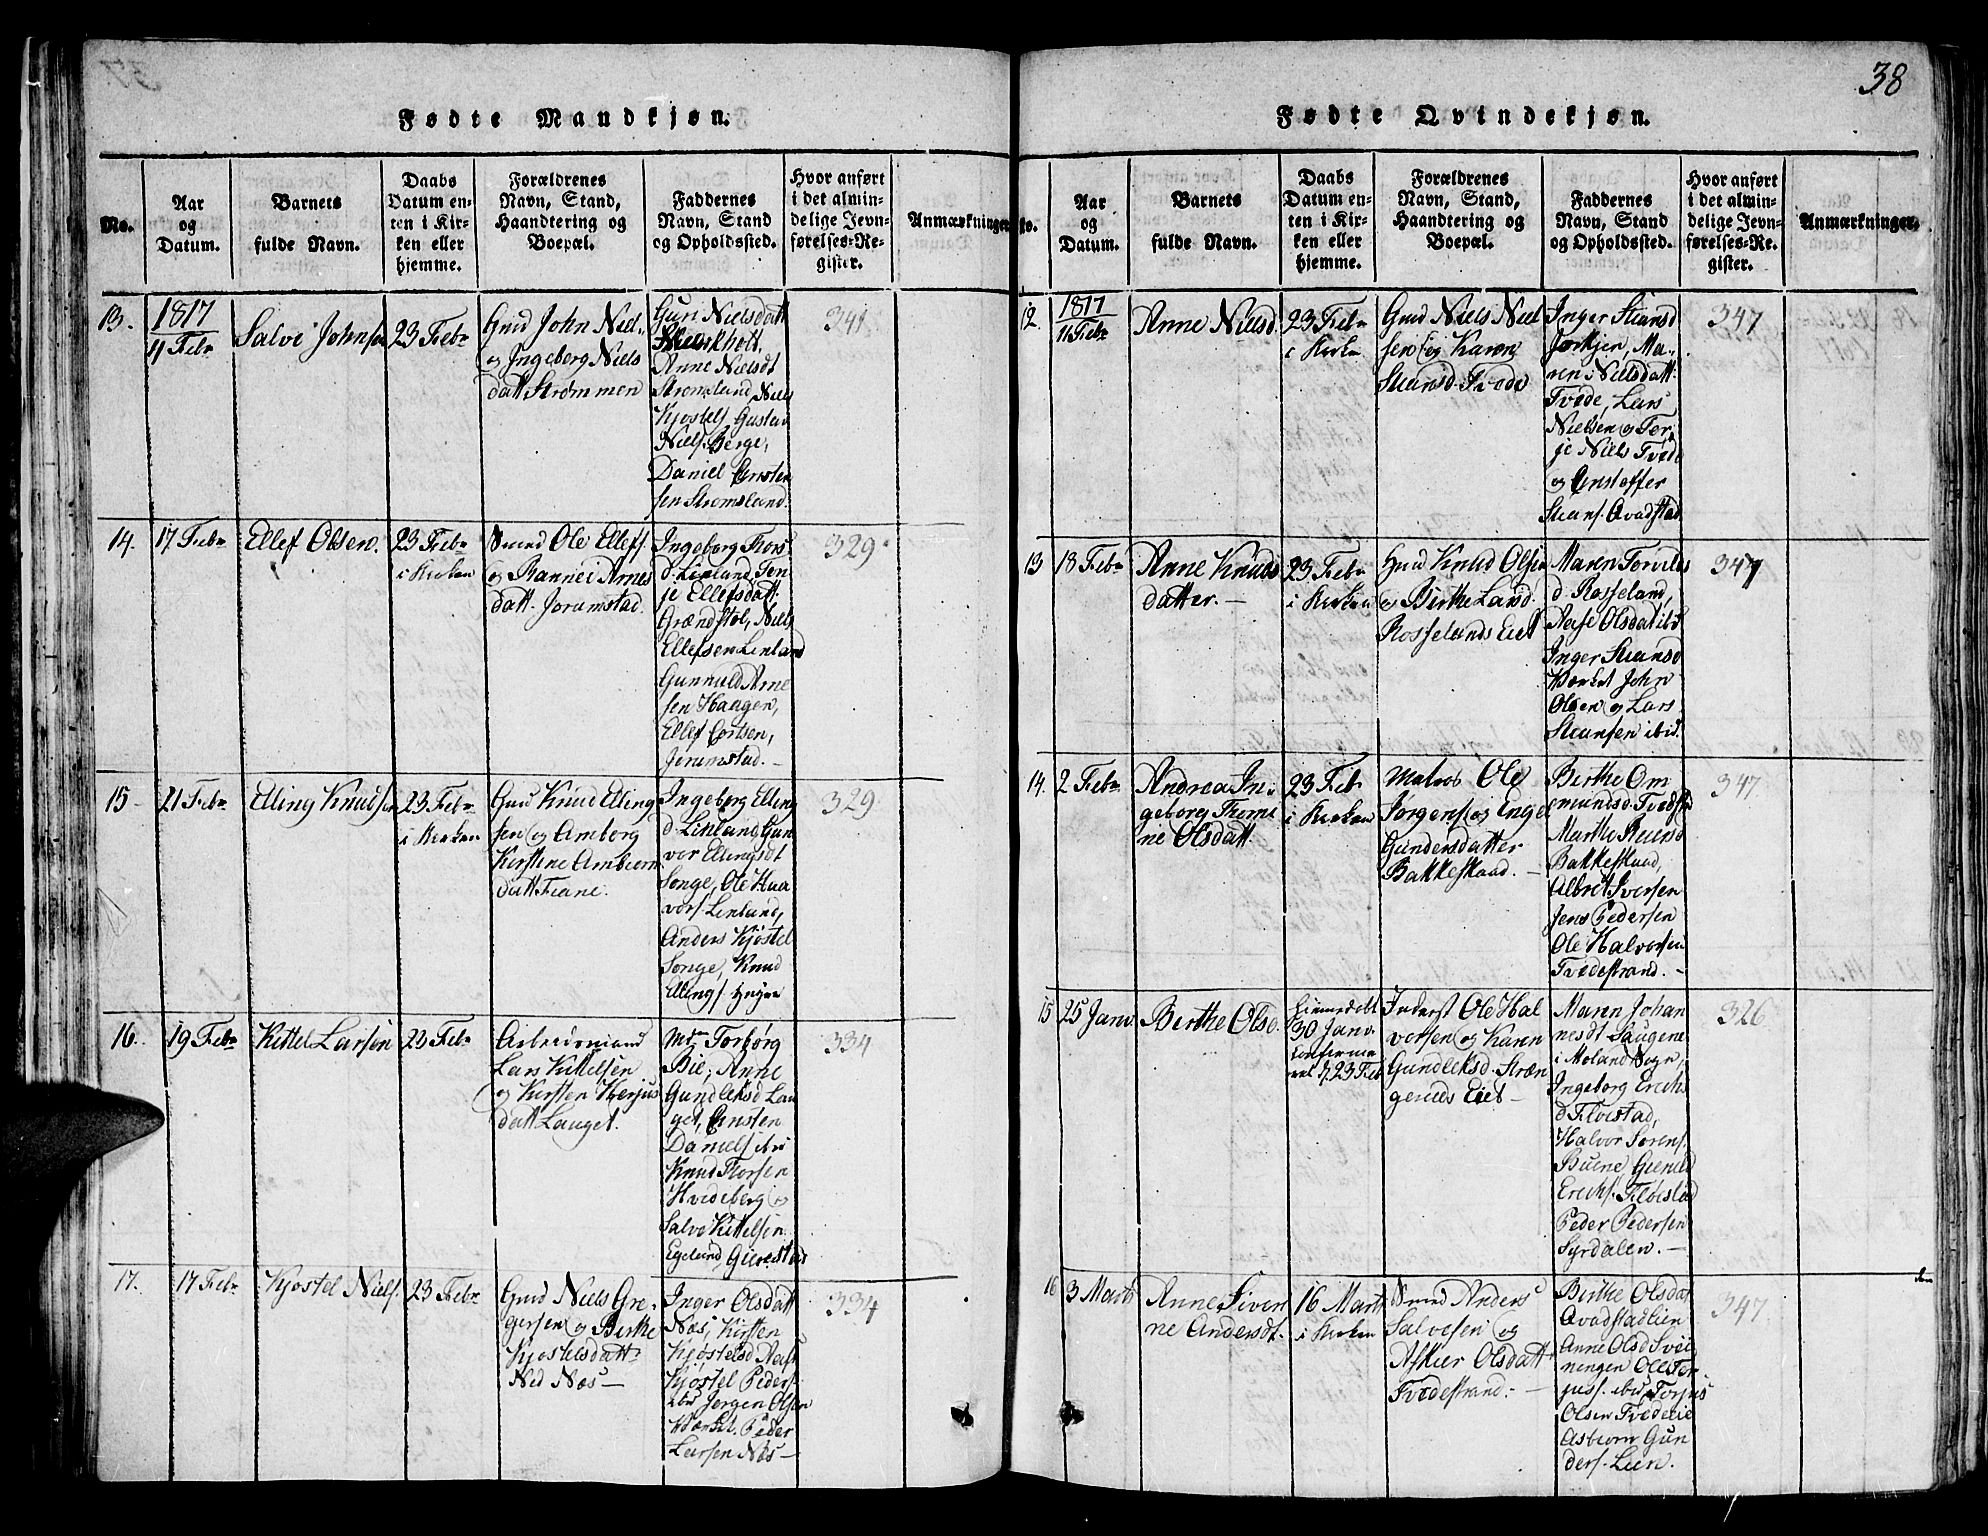 38
Fødte Mandkjøn.
No.
Aar
og
Datum.
Barnets
fulde Navn.
Daabs
Datum en-
ten i Kir-
ken eller
hjemme.
Forældrenes
Navn, Stand,
Haandtering og
Boepæl.
Faddernes
Navn, Stand
og Opholdssted.
Hvor anført
i det almin-
delige Jevn-
førelses-Re-
gister.
Anmærkninger
13.
1817
11 Febr
Salve Johnsen
23 Febr
Gmd John Niel-
og Ingeborg Niels
datt Strømmen
Gun Nielsdatt
Anne Nielsdt
Stromsland, Niels
Kjostels, Gustav
Niels. Berge,
Daniel Ansten
sen Stromsland.
341
14.
17 Febr
Ellef Olsen.
23 Febr
i Kirken
Smed Ole Ellefs.
og Rannei Arnes
datt. Joramstad.
Ingeborg Thors
d. Linland, Ten
je Ellefsdatt.
Grændstøl, Niels
Ellefsen Linland
Gunnuld Arne
sen Haagen,
Ellef Cortsen,
Jeramstad. -
329
15
21 Febr
Elling Knudsen
23 Febr
i Kirken
Gmd Knud Elling
sen og Amborg
Kirstine Ambiørn
datt Fiane.
Ingeborg Elling
d. Linland, Gun
vor Ellingsdt
Songe, Ole Haa
vors. Linland,
Anders Kjøstel
Songe, Knud
Ellings
329
16.
19 Febr
Kittel Larsen
23 Febr
Arbeidsmand
Lars Kittelsen
og Kirsten Herjus
datt Lauget.
Md Torborg
Bie, Anne
Gundleksd Lau
get, Ansten
Daniels ibid
Knud Thorsen
Hvideberg og
Salve Kittelsen
Egelund, Gierrestad
334
17.
17 Febr
Kjøstel Niels.
23 Febr
Gmd Niels Gre-
gersen og Birthe
Kjøstelsdatt
Ned Næs -
Inger Olsdatt
Næs, Kirsten
Kjøstelsd
Kjøstel Peders-
ibid Jørgen Olsen
Peder
Larsen Næs -
334
Fødte Qvindekjøn.
No.
Aar
og
Datum.
Barnets
fulde Navn.
Daabs
Datum en-
ten i Kir-
ken eller
hjemme.
Forældrenes
Navn, Stand,
Haandtering og
Boepæl.
Faddernes
Navn, Stand
og Opholdssted.
Hvor anført
i det almin-
delige Jevn-
førelses-Re-
gister.
Anmærkninger.
12.
1817
16 Febr
Anne Nielsd.
23 Febr
i Kirken
Gmd Niels Niel
sen og Karen
Steansd. Tvede
Inger Steansd
Ma-
ren Nielsdatt.
Tvede, Lars
Nielsen og Ter
je Niels Tvede
og Ansteffer
Steans. Qvadstad
347
13
18 Febr
Anne Knuds
datter. -
23 Febr
i Kirken
Gmd Knud Olsen
og Birthe Larsd.
Rosselands Eiet
Maren Torvilds
d. Rosseland,
Aase Olsdat ibd
Inger Steansd
John
Olsen og Lars
Steansen ibid.
347
14.
2 Febr
Andrea In-
geborg Thomi
ne Olsdatt.
23 Feb
i Kirken
Matros Ole
Jorgens og Engel
Gundersdatter
Bakkeskaad. -
Birthe Om
mundsd. Tvedst
Marthe Reiersd
Bakkeskaad,
Albret Iversen
Jens Pedersen
Ole Halvorsen
Tvedestrand. -
347
15
25 Janv.
Birthe Olsd.
hiemedøbt
30 Janv.
confirme
ret d. 23 Feb
Inderst Ole Hal
vorsen og Karen
Gundleksd. Stræn
gereids Eiet -
Maren Johan
nesdt Saugene
i Moland Sogn,
Ingeborg Erichs
d. Fløistad,
Halvor Sørens.
Buene
Erichs. Fløistad
Peder Pedersen
Syrdalen. -
326
16
3 Marts
Anne Siver
ne Andersdt.
16 Marts
i Kirken
Smed Anders
Salvesen og
Askier Olsdatt
Tvedestrand. -
Birthe Olsdat
Qvadstadlien
Anne Olsd Svei
ningen Ole Ter
juss. ibid, Torjus
Olsen Tvedeeie
Asbiorn Gun
ders. Lien.
347